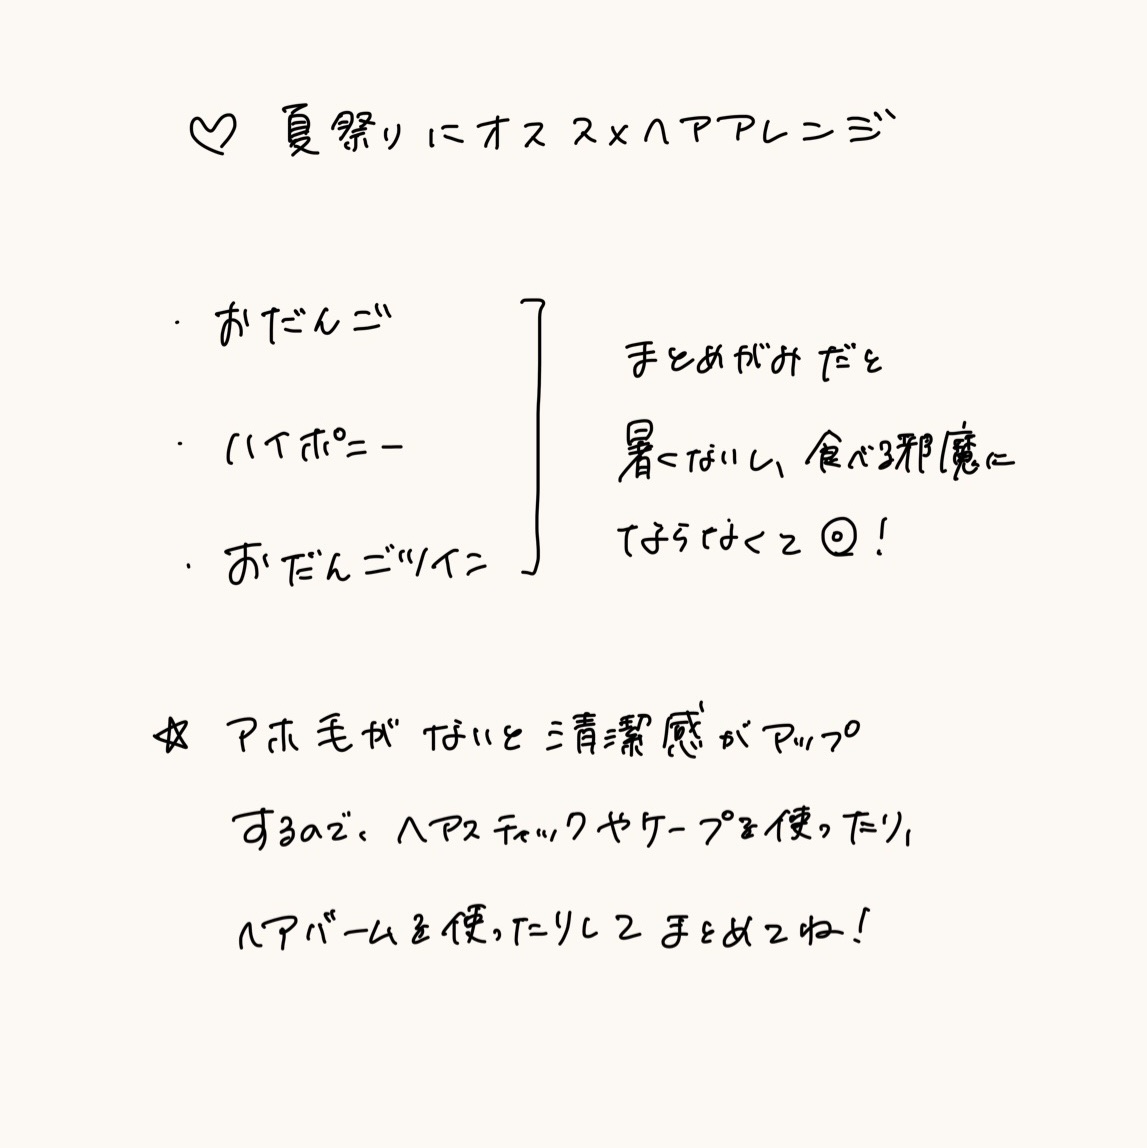 ♡ 夏祭りにオススメヘアアレンジ
・おだんご
・ハイポニー
・おだんごツイン
まとめがみだと
暑くないし、食べる邪魔に
ならなくて◎!
☆ アホ毛がないと清潔感がアップ
するので、ヘアスティックやケープを使ったり、
ヘアバームを使ったりしてまとめてね!